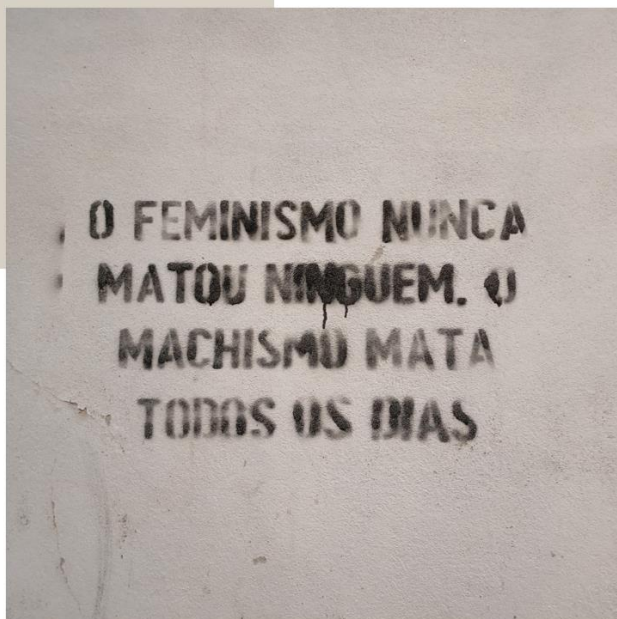 O FEMINISMO NUNCA
MATOU NINGUEM. O
MACHISMO MATA
TODOS OS DIAS